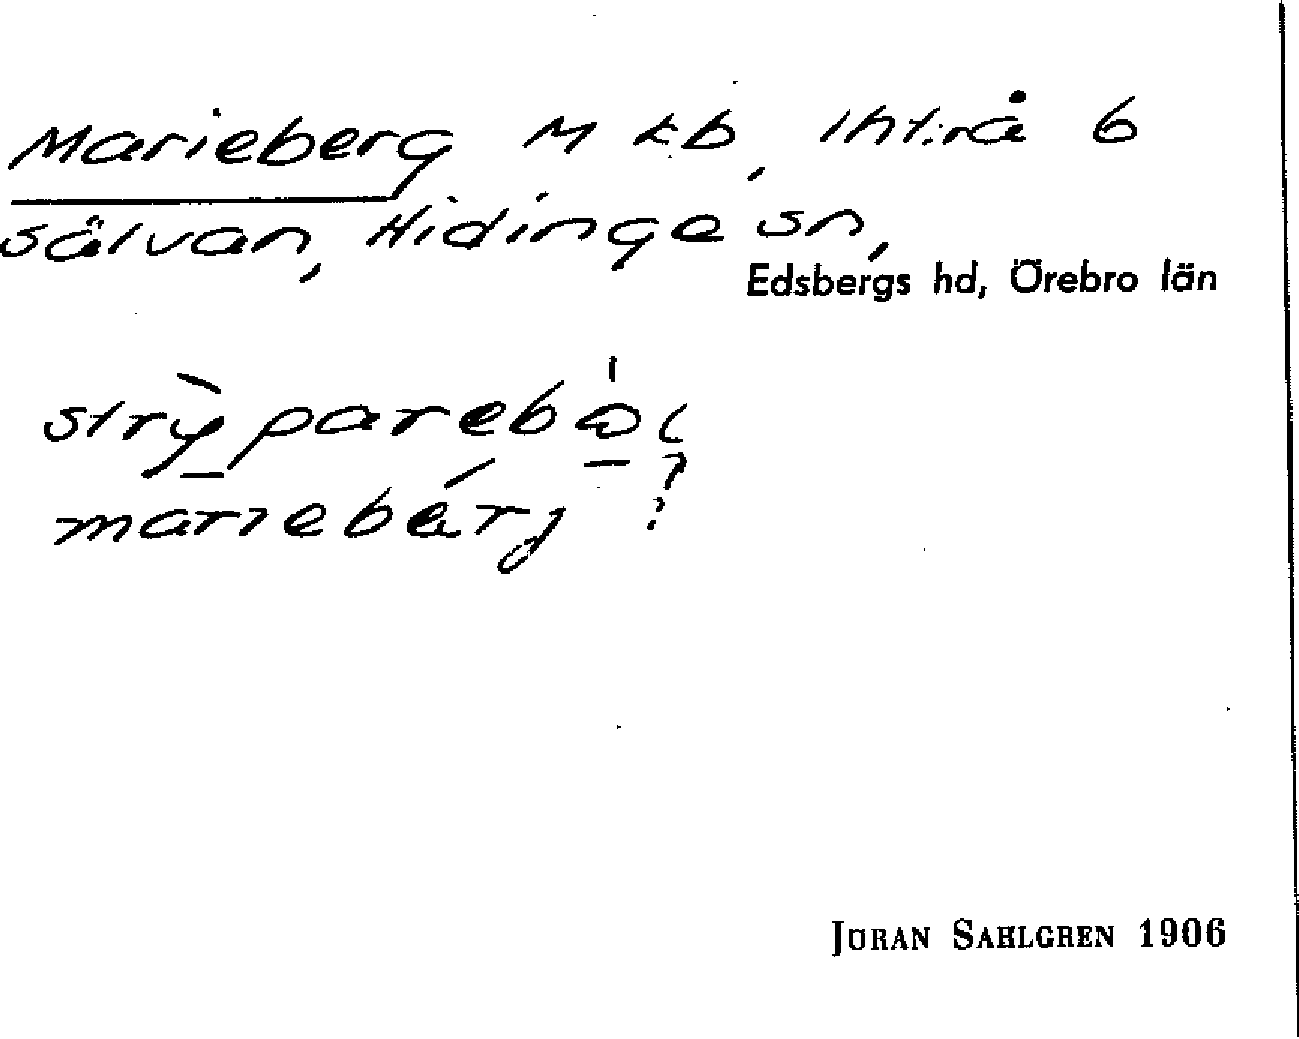 Marieberg M kb, 1ht.rå 6
sälvan, Hidinge sn,
Edsbergs hd, Örebro län
strỳpareból
marıebérj ?
JÖRAN SAHLGREN 1906